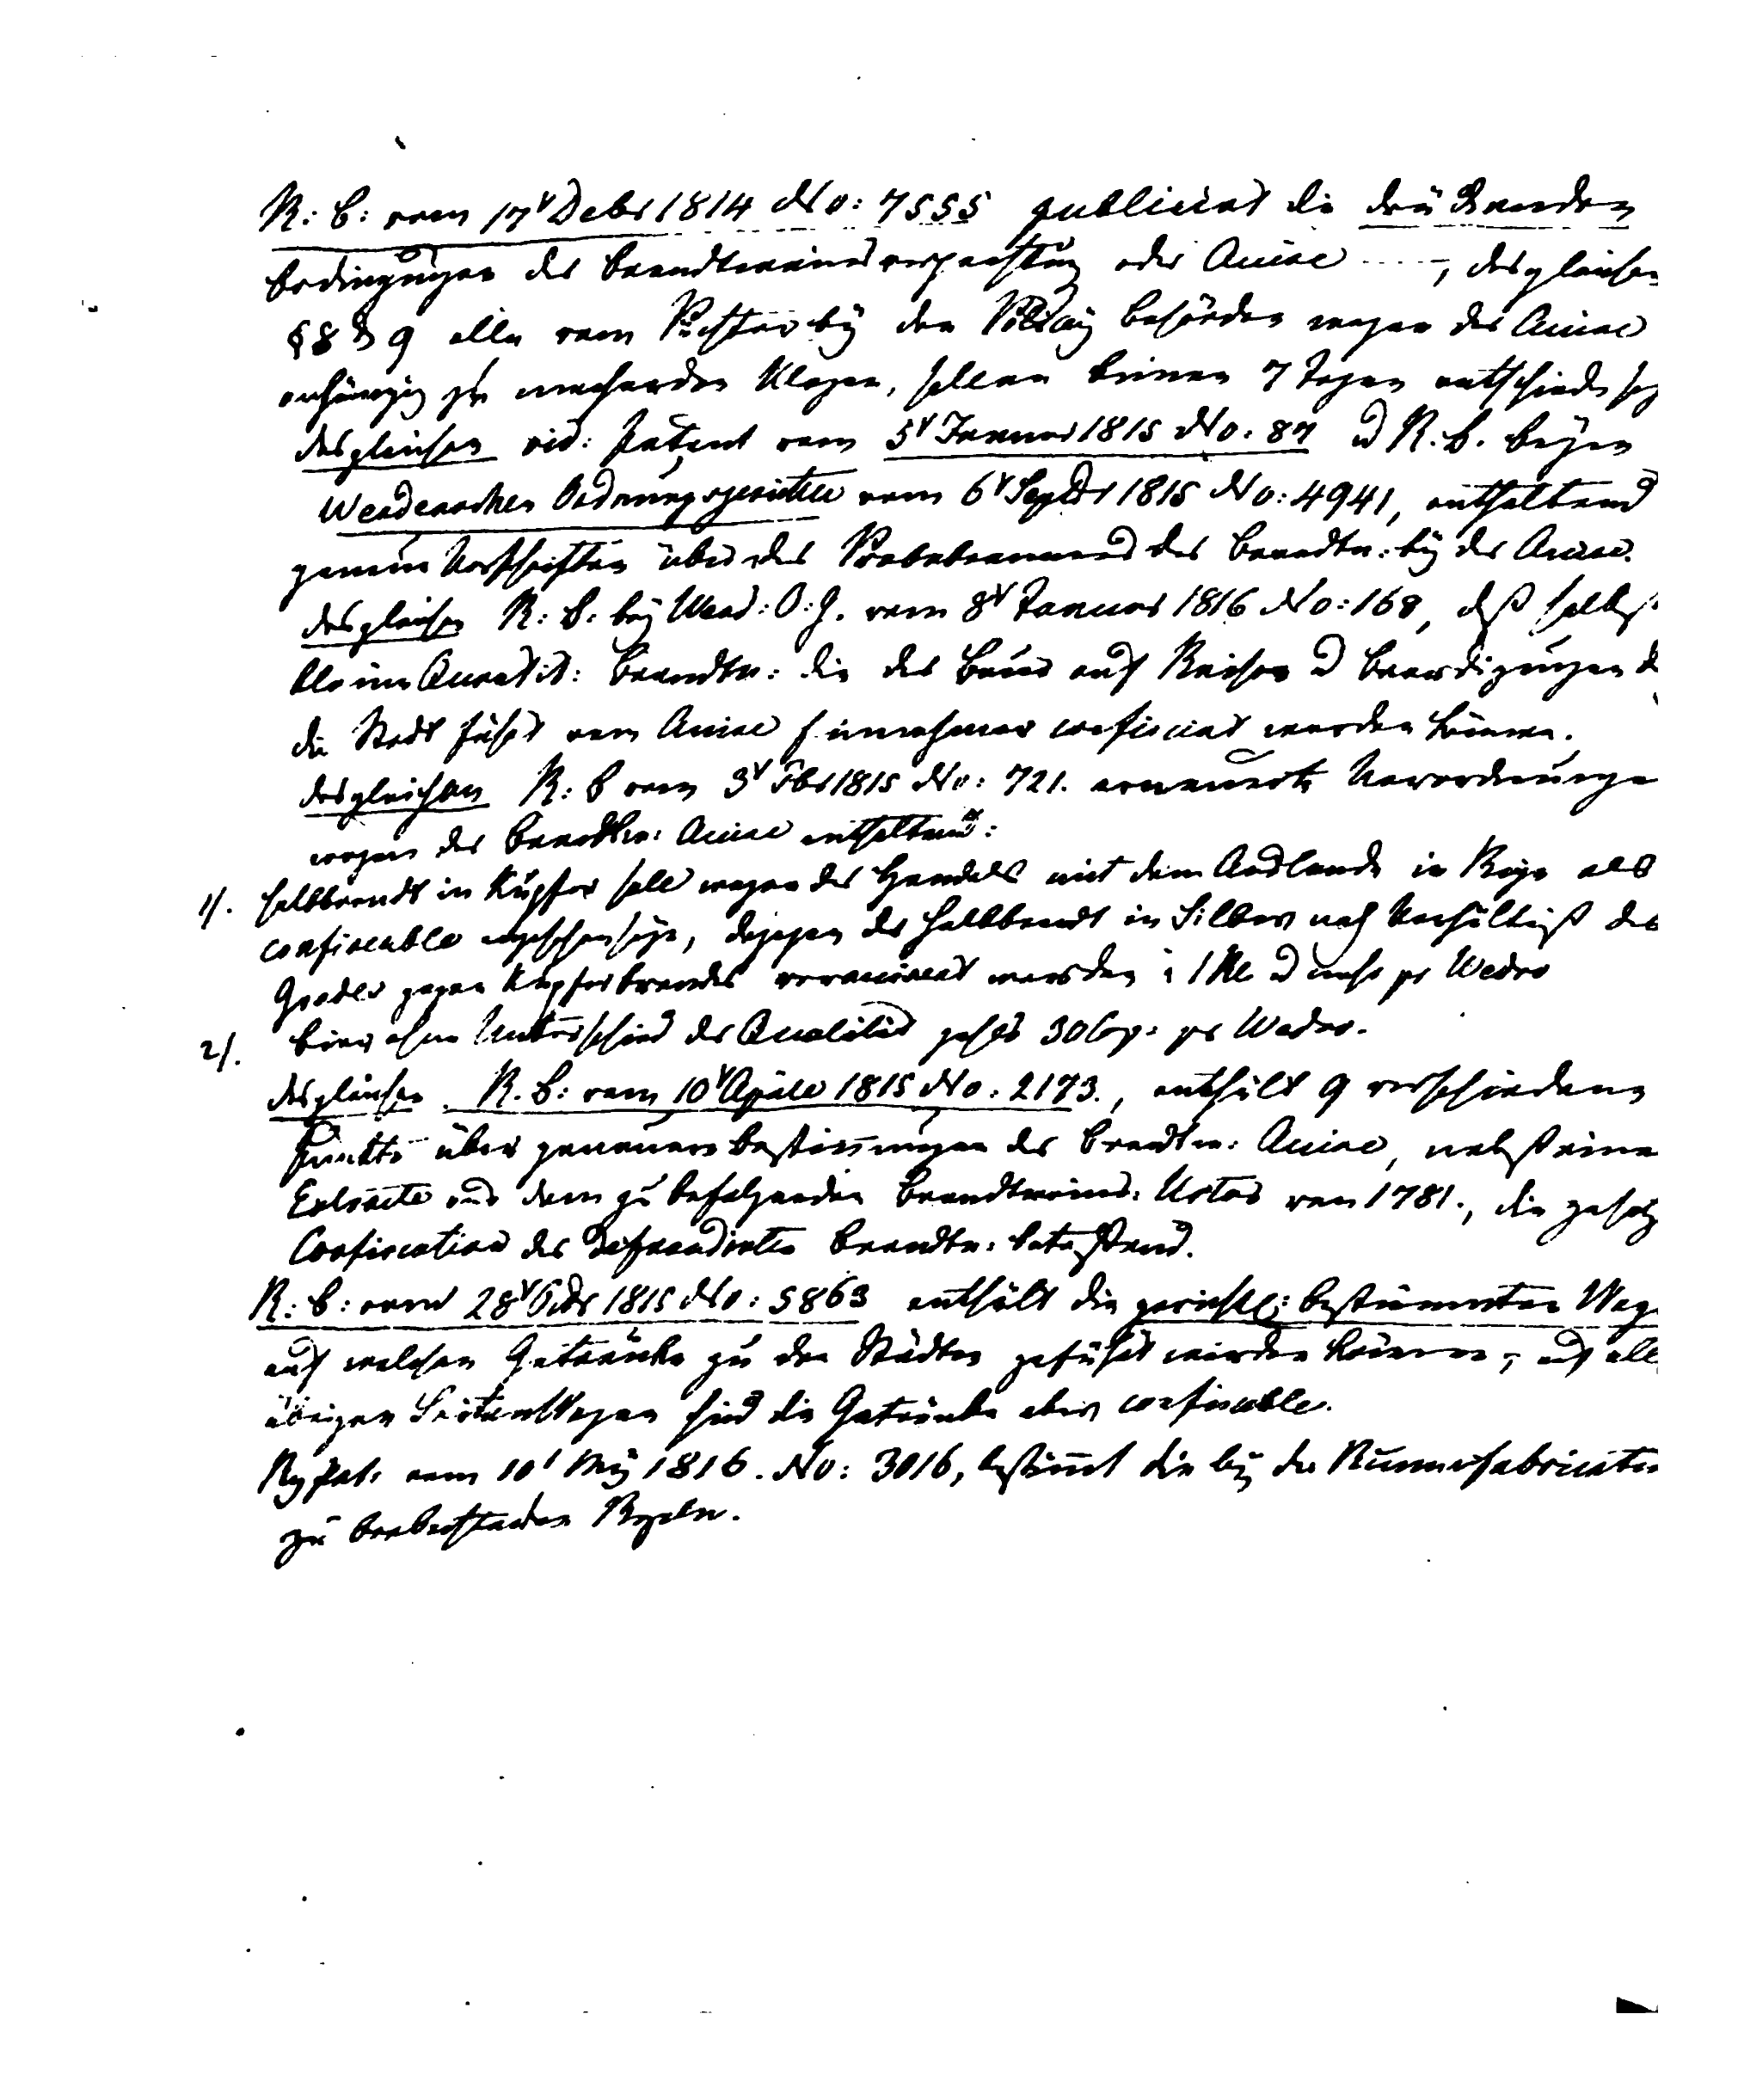 R: B: vom 17t Debr 1814 No: 7555 publicirt die drückenden
Bedingungen der Brandtweinsverpachtung oder Accise ----, desgleichen
§ 8 & 9 alle vom Pächter bey den Policey Behörden wegen der Accise
anhängig zu machenden Klagen, sollen binnen 7 Tagen entschieden seyn
desgleichen vid: Patent vom 5t Januar 1815 No. 87 u R. B. beym
Wendenschen Ordnungsgerichte vom 6t Septbr 1815 No: 4941, enthaltend
genaue Vorschriften über das Probebrennen des Brandtw: bey der Accise.
desgleichen R: B. bey Wend: O: G. vom 8t Januar 1816 No: 168, daß selbst
kleine Quantit: Brandtw: die der Bauer auf Reisen u Beerdigungen
die Stadt führt vom Accise Einnehmer confiscirt werden können.
desgleichen R: B vom 3t Fbr 1815 No: 721. erneuerte Verordnunge
wegen der Brandtw: Accise enthaltend:
1/. Halbbrandt in Kupfer soll wegen des Handels mit dem Auslande in Riga als
confiscable angesehen seyn, dagegen der Halbbrandt in Silber nach Verhältniß des
Grades gegen Kupferbrandt veraccisirt werden à 1 Rl u mehr pr Wedro
2/. Bier ohne Unterschied der Qualität zahlt 30 Cop: pr Wedro.
desgleichen R. B: vom 10t Aprile 1815 No: 2173., enthält 9 verschiedene
Puncte über genauere Bestimungen der Brandtw: Accise, nebst eine
Extracte aus dem zu befolgenden Brandtweins: Ustav von 1781., die gesetz
Confiscation des defraudirten Brandtw: betreffend.
R: B: vom 28t Octbr 1815 No: 5863 enthält die gerichtl: bestimmten Wege
auf welchen Getränke zu den Städten geführt werden können, auf alle
übrigen Seitenwegen sind die Getränke aber confiscable.
Rg Pat: vom 10t May 1816. No: 3016, bestimt die bey der Rummfabricatio
zu beobachtenden Regeln.